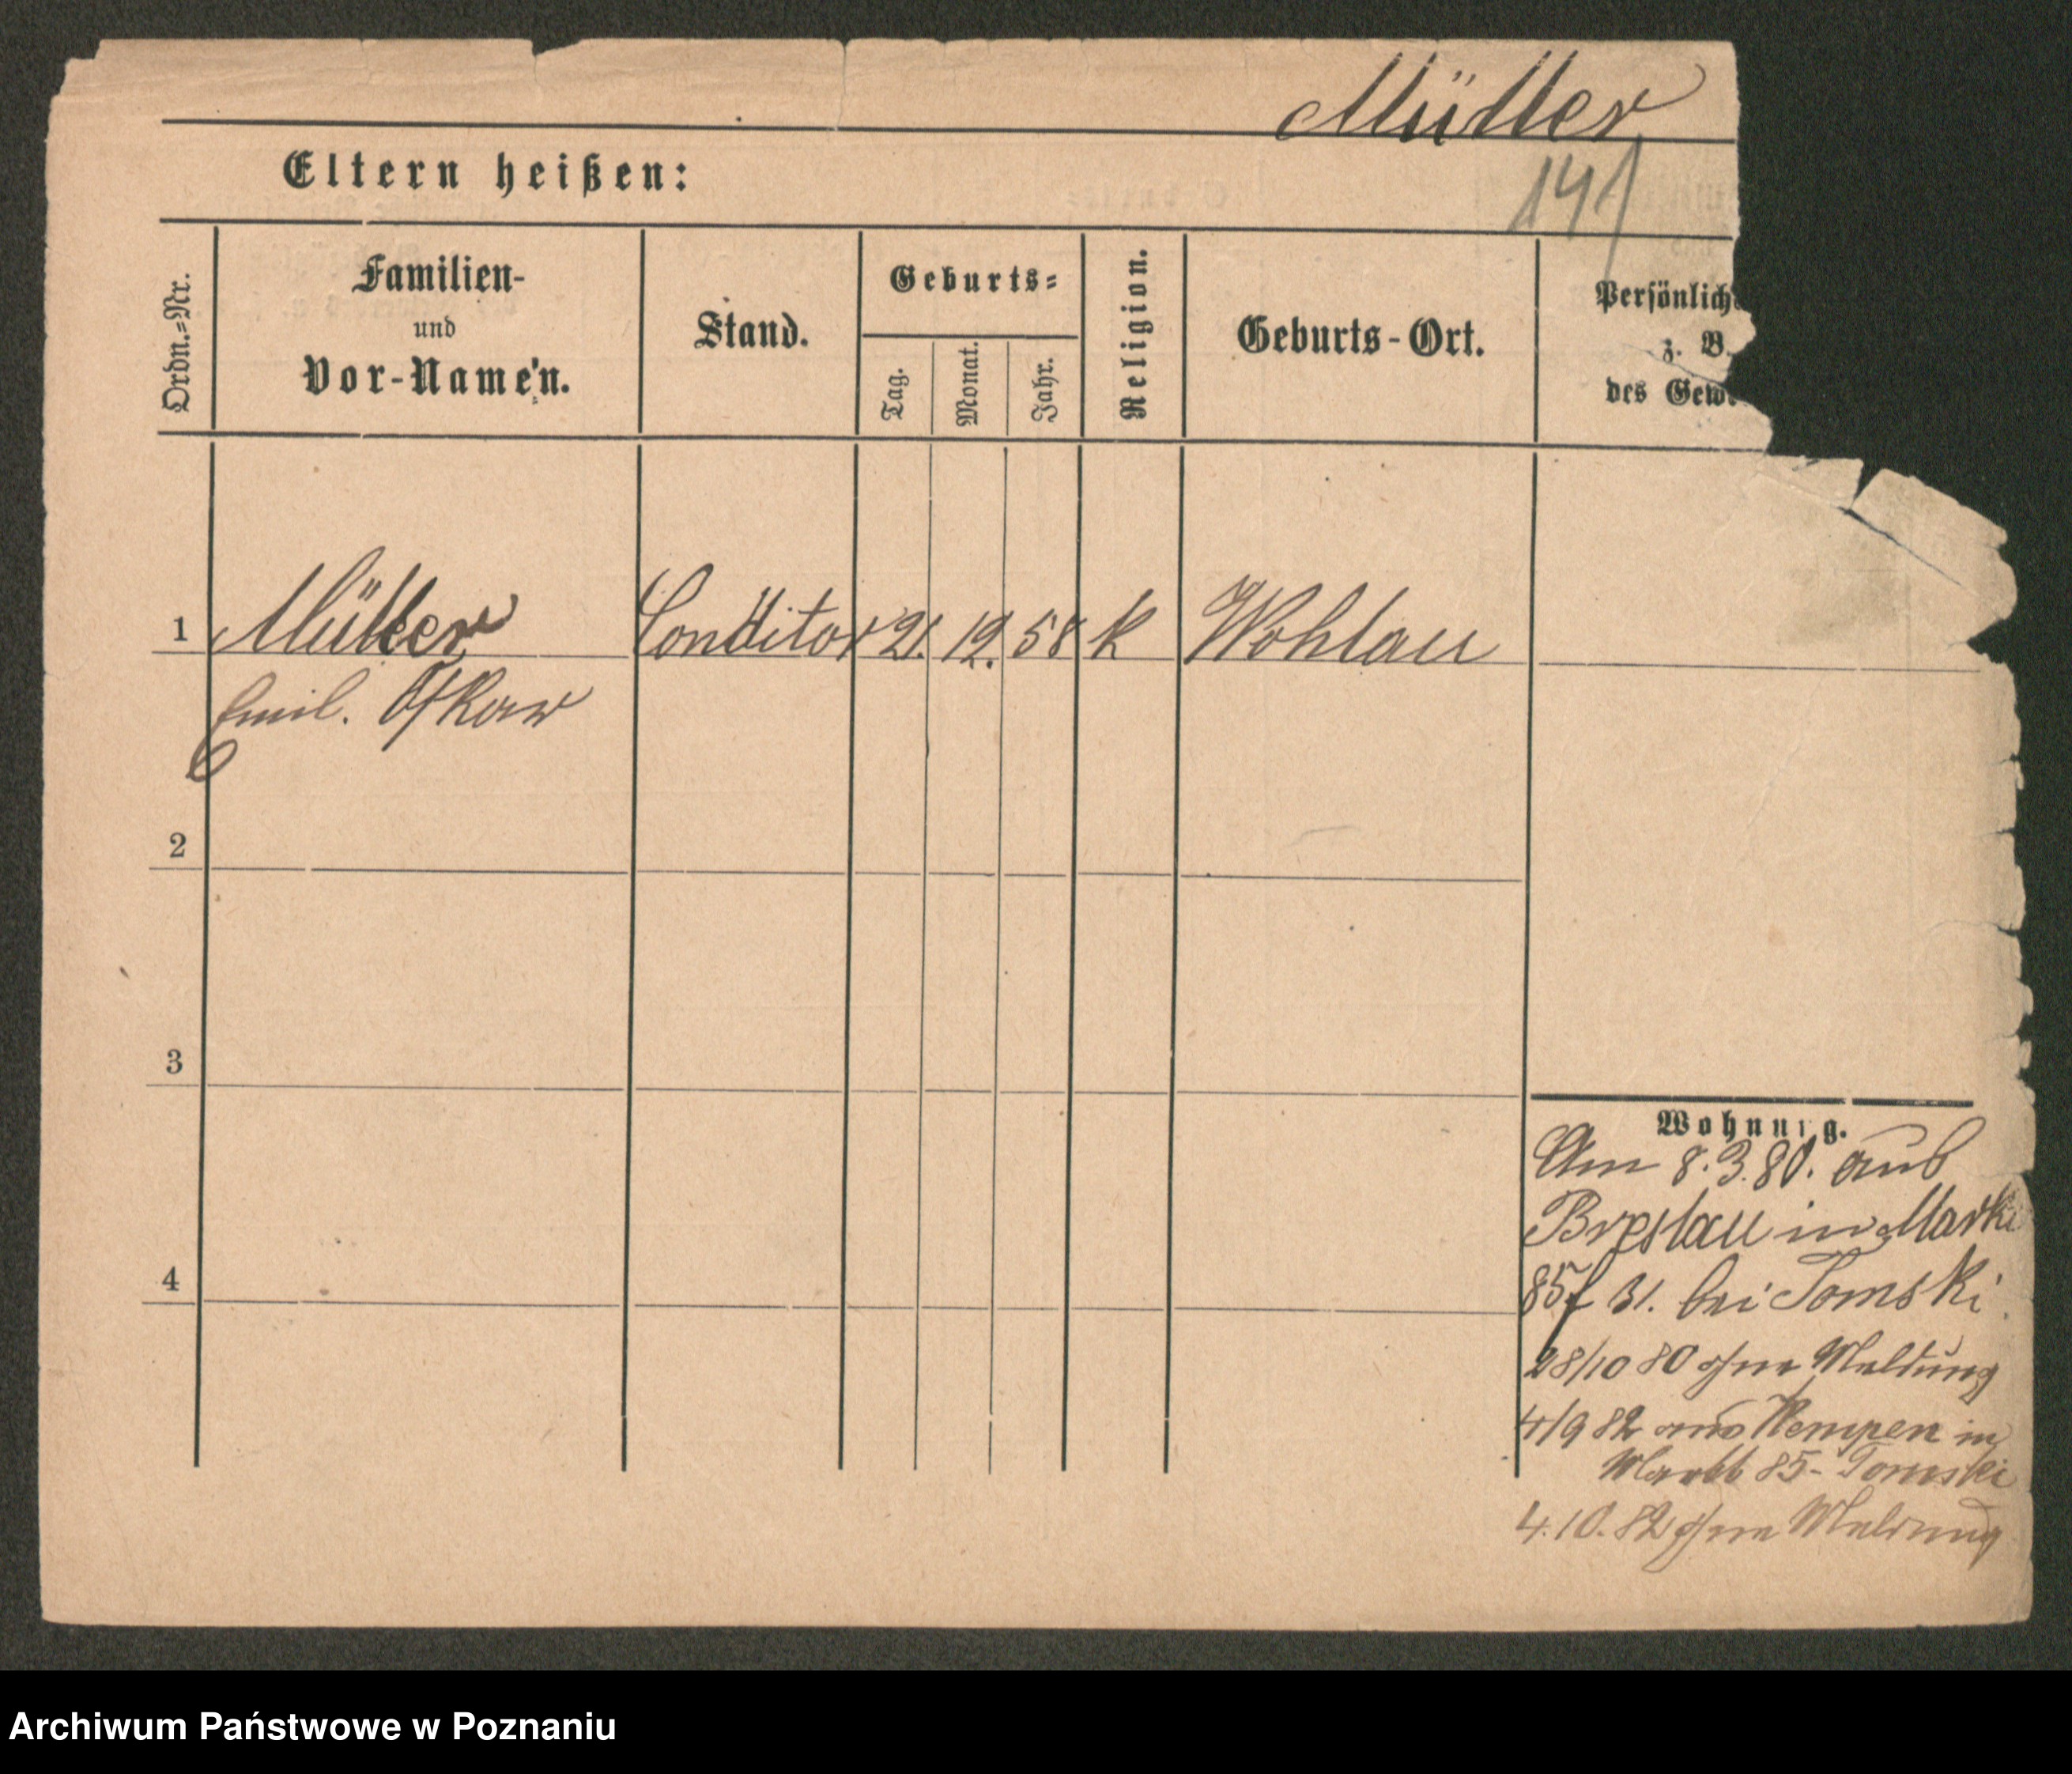 Müller
141
Eltern heißen:
Ordn.=Nr.
Familien-
und
Vor-Namen.
Stand.
Geburts=
Tag.
Monat.
Jahr.
Religion.
Geburts-Ort.
Persönlich
z. B.
des Gew
1 Müller Conditor 21. 12. 58 K Wohlau
Emil. Oskar
2
3
4
Wohnung.
Am 8.3.80. aus
Breslau in Markt
85 f 31. bei Tomski
28/10 80 ohne Meldung
4/9 82 aus Kempen in
Markt 85- Tomski
4.10.82 ohne Meldung
Archiwum Państwowe w Poznaniu